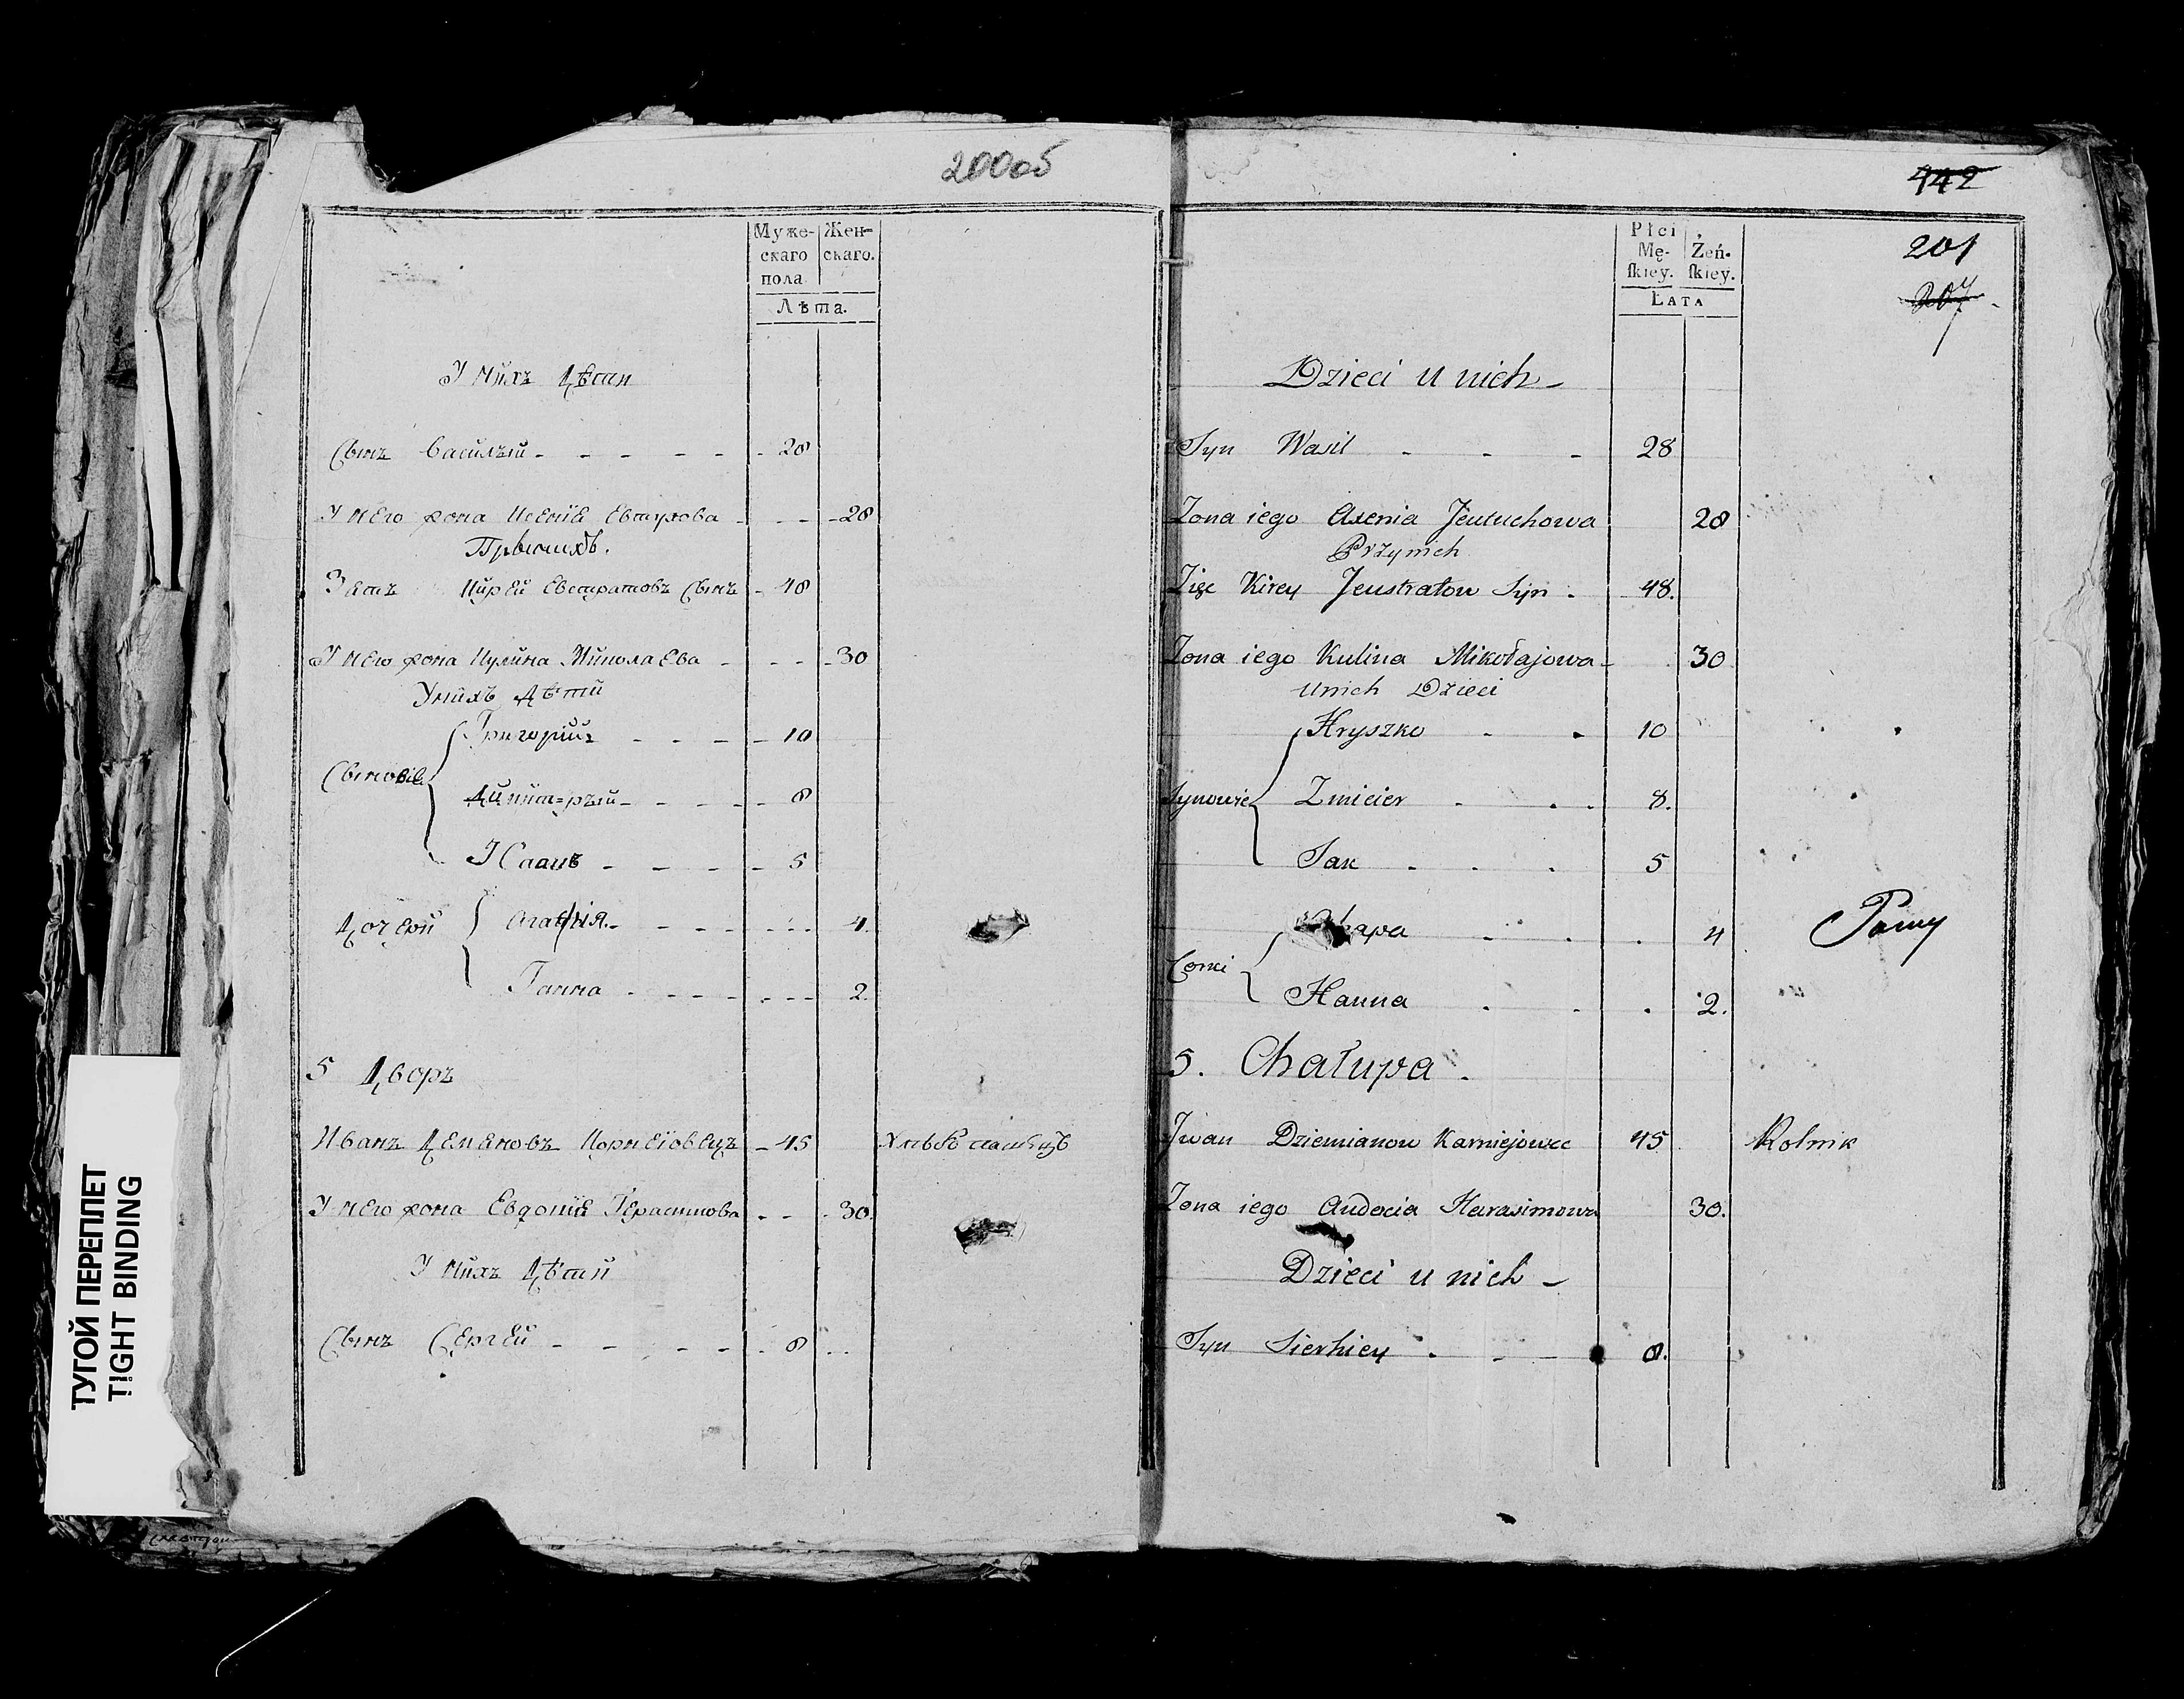 200об
Муже-
скаго
пола.
Жен-
скаго.
Лѣта.
У нихъ Дѣти
Сынъ Василѣй 28
У него жона Ксеніѧ Евтухова 28
При нихъ.
Зять Кирей Евстратовъ Сынъ 48
У него жона Кулина Миколаева 30
У нихъ дѣти
Сыновіе
Григорій 10
Димит=рѣй 8
Исаакъ 5
Дочери
Агафія 4
Ганна 2.
5 Дворъ
Иванъ Демяновъ Корнеіовецъ 45
У него жона Евдокіѧ Герасимова 30.
У нихъ Дѣти
Сынъ Сергей 8
442
201
207
Płci
Mę-
ſkiey.
Żeń-
ſkiey.
Lata
Dzieci u nich
Syn Wasil 28
Zona iego Axenia Jewtuchowa 28
Przy nich
Zięc Kirey Jewstratow Syn 48.
Zona iego Kulina Mikołajowa 30
u nich Dzieci
Synowie
Hryszko 10
Zmicier 8.
Jan 5
Corki
4
Hanna 2.
5. Chałupa.
Jwan Dziemianow Karniejowec 45 Rolnik
Zona iego Audocia Harasimowa 30.
Dzieci u nich
Syn Sierhiey 8.
ТУГОЙ ПЕРЕПЛЕТ
TIGHT BINDING